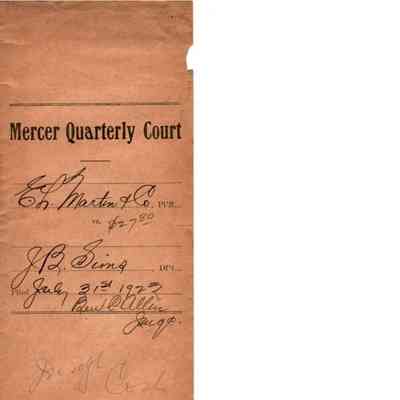 Mercer Quarterly Court
Ed. Martin & Co. PLFF.
vs. $27.80
J.B. Sims DFT.
Filed July 31st 1922
Ben C Allin
Judge.